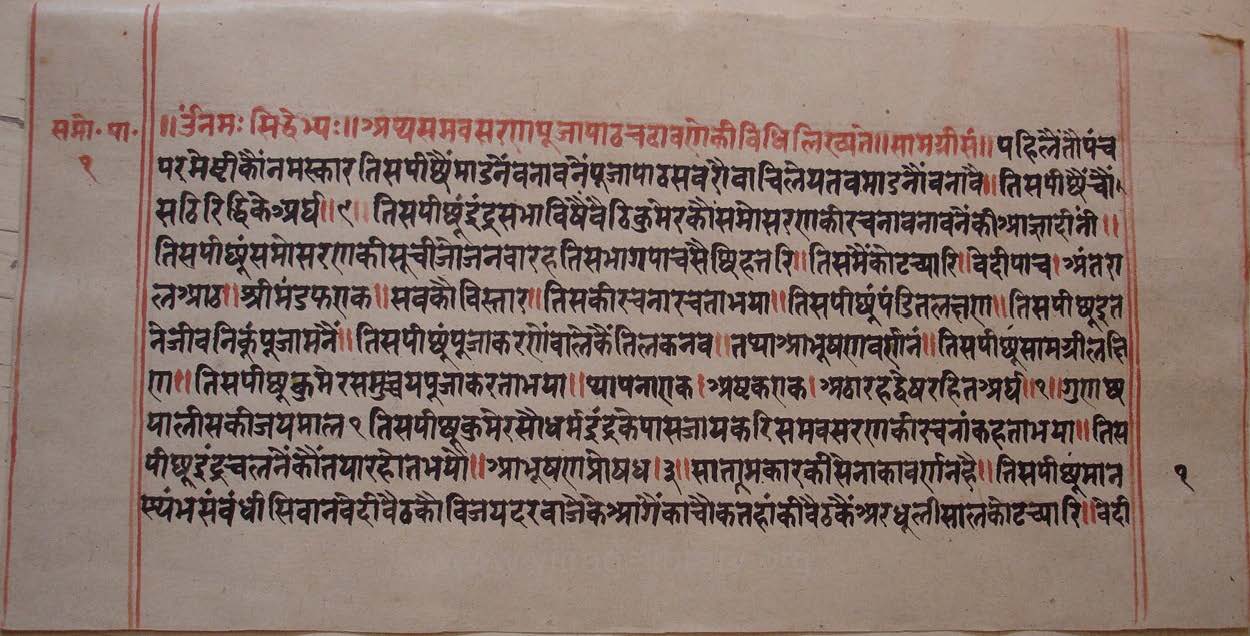 समो. पा.
१
॥ उंनमः सिद्धेभ्यः॥ अथ समवसरणपूजापाठ चढावणेकी विधि लिख्यते॥ सामग्रीसं॥ पहिलैंतौ पंच
परमेष्टीकौंनमस्कार तिसपीछैं मांडनैंवनावनैं पूजापाठसवरौवाचिलेय तव मांडनौंवनावै॥ तिसपीछैं चौं
सठि रिद्धिके अर्घ॥ ९॥ तिसपीछूं इंद्रसभाविषैवैठि कुमेरकौं समोसरणकीरचनावनावनैंकीआज्ञादीनी॥
तिसपीछुं समोसरणकीसूचीजोजनवारह तिसभागपाचसैछिहत्तरि॥ तिसमैंकोटच्यारि॥ वेदीपाच। अंतरा
लआठ॥ श्रीमंडफ एक॥ सवकौ विस्तार॥ तिसकीरचनारचताभया॥ तिसपीछूं पंडितलक्षण॥ तिसपीछूदूत
नेजीवनिकुं पूजामनैं॥ तिसपीछुं पूजाकरणेंवालेकैं तिलकनव॥ तथा आभूषणवर्णनं॥ तिसपीछुं सामग्रीलक्षि
ण॥ तिसपीछूकुमेरसमुच्चयपूजाकरताभया॥ थापनाएक। अष्टकएक। अठारहद्वेषरहितअर्घ॥ १॥ गुणछ
यालीसकीजयमाल १ तिसपीछूकुमेरसौधर्मइंद्रकेपासजायकरिसमवसरणकीरचनांकहताभया॥ तिस
पीछूइंद्रचलनैंकौंतयारहोतभयौ॥ आभूषण प्रोषध। ३॥ सातप्रकारकीसेनाकावर्णनहै॥ तिसपीछुंमान
स्थंभसंवंधीसिवानवेदीवैठकौ विजयदरवाजैकेआगैंकाचौकतहांकीवैठकैं अरधूलीसालकोटच्यारि॥ वेदी
१